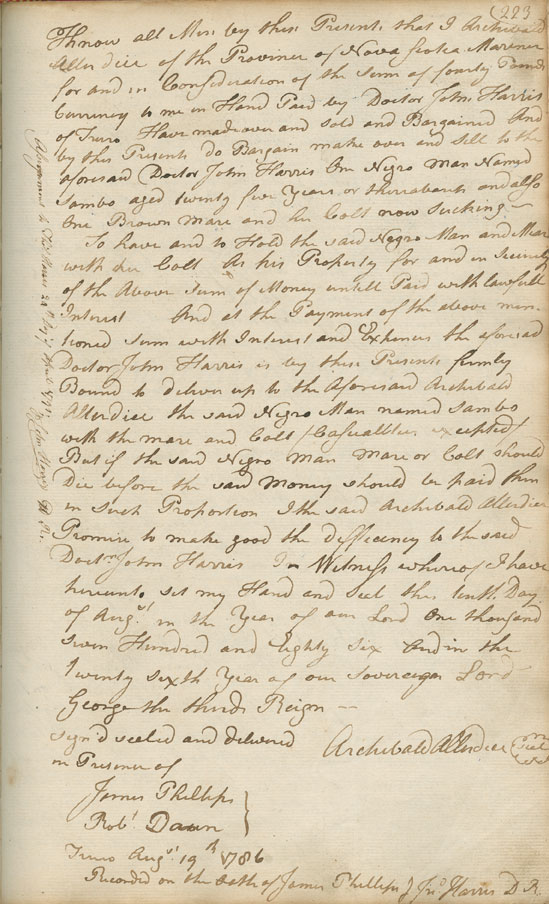 (223
Know all Men by these Presents that I Archibald
Allerdice of the Province of Nova Scotia Mariner
for and in Consideration of the Sum of fourty Pounds
Currency to me in Hand Paid by Doctor John Harris
of Truro Have made over and Sold and Bargained And
by these Presents do Bargain make over and Sell to the
aforesaid Doctor John Harris One Negro Man Named
Sambo aged twenty five Years or thereabouts and also
One Brown Mare and her Colt now Sucking —
To have and to Hold the said Negro Man and Mare
with her Colt As his Property for and in Security
of the Above Sum of Money untill Paid with lawfull
Interest And at the Payment of the above men-
tioned Sum with Interest and Expences the aforesd
Doctor John Harris is by these Presents firmly
Bound to deliver up to the Aforesaid Archibald
Allerdice the said Negro Man named Sambo
with the mare and Colt (Casualties excepted)
But if the said Negro Man Mare or Colt should
Die before the said Money should be paid then
in Such Proportion I the said Archibald Allerdice
Promise to make good the difficency to the said
Doctr John Harris In Witness whereof I have
hereunto set my Hand and Seal this tenth Day
of Augst in the Year of our Lord One thousand
seven Hundred and Eighty Six And in the
Twenty sixth Year of our Sovereign Lord
George the thirds Reign —
sign'd sealed and delivered
in Presence of
Archibald Allerdice
James Phillips
Robt Dawn
Truro Augst 19th 1786
Recorded on the Oath of James Phillips Jno Harris D R